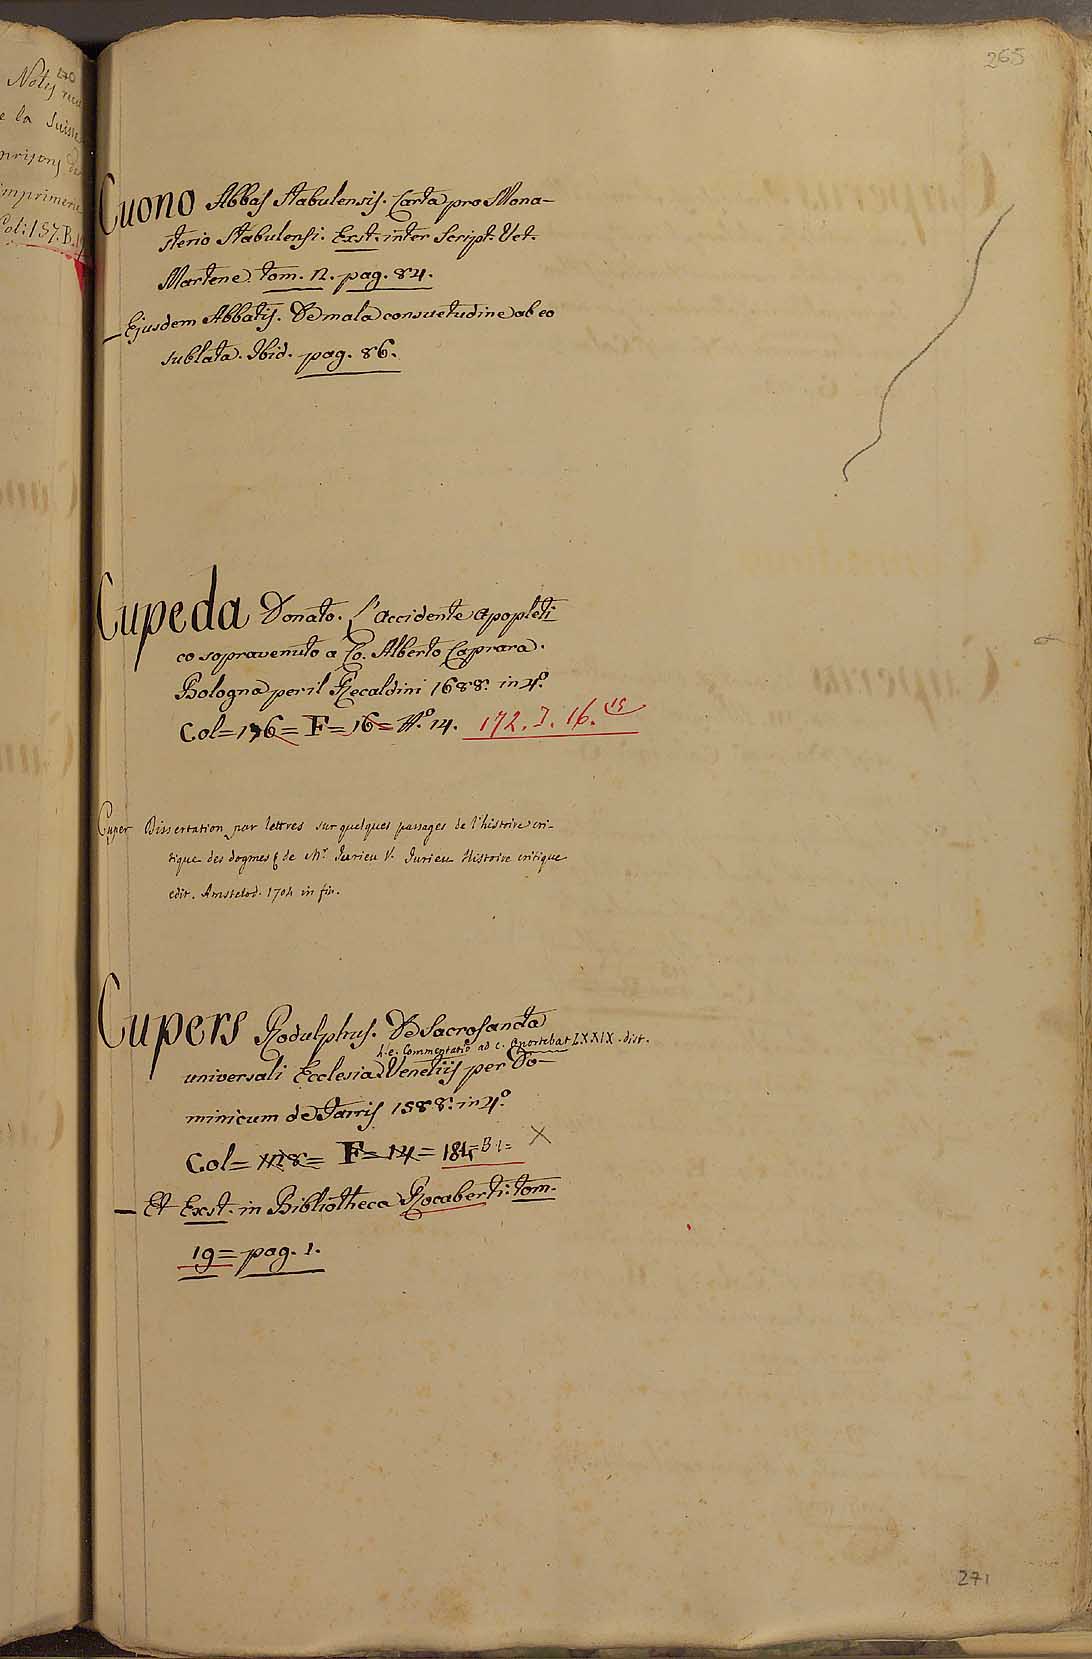 265
270
Notes
e la Suisse
prisons de
imprimerie
Col: 157. B. 19
Cuono Abbas Stabulensis. Carta pro Mona-
sterio Stabulensi. Exst. inter Script. Vet.
Martene. tom. 2. pag. 84.
— Ejusdem Abbatis. De mala consuetudine ab eo
sublata. Ibid. pag. 86.
Cupeda Donato. L'accidente apopleti
co sopravenuto a Co. Alberto Caprara.
Bologna per il Recaldini 1688. in 4.º
Col=176= F=16= Nº. 14. 172. I. 16. 15
Cuper Dissertation par lettres sur quelques passages de l'histoire cri-
tique des dogmes & de Mr. Jurieu V. Jurieu Histoire critique
edit. Amstelod. 1704 in fin.
Cupers Rodulphus. De Sacrosancta
h. e. Commentatio ad c. Oportebat LXXIX. dist.
universali Ecclesia. Venetiis per Do-
minicum de Farris 1588. in 4.º
Col= 178= F= 14= 184= B 1= X
— Et Exst. in Bibliotheca Rocaberti. tom.
19= pag. 1.
271